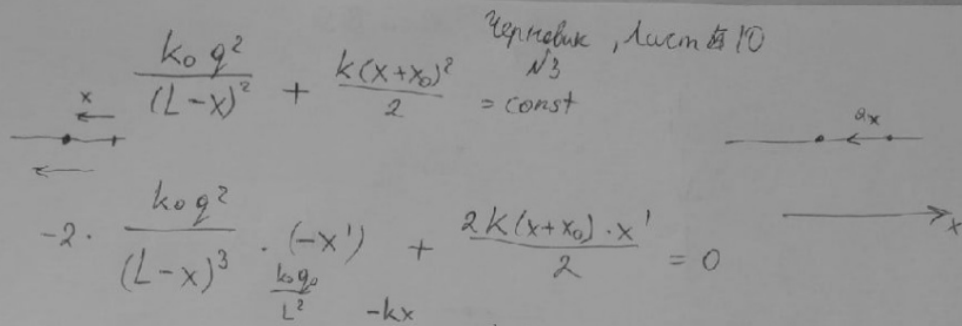 Черновик, Лист 10
N3
k₀q²/(L-x)² + k(x+x₀)²/2 = const
x
aₓ
-2 · k₀q²/(L-x)³ · (-x') + 2k(x+x₀)·x'/2 = 0
x
k₀q₀/L² -kx